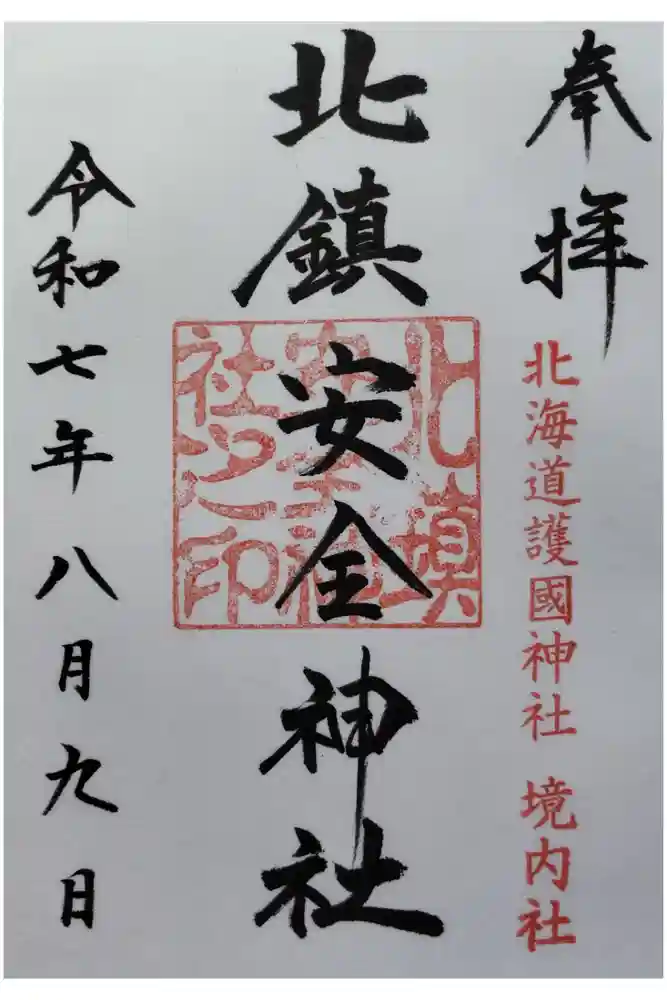 奉拝
北海道護國神社 境内社
北鎮安全神社
北鎮
安全神
社之印
令和七年八月九日